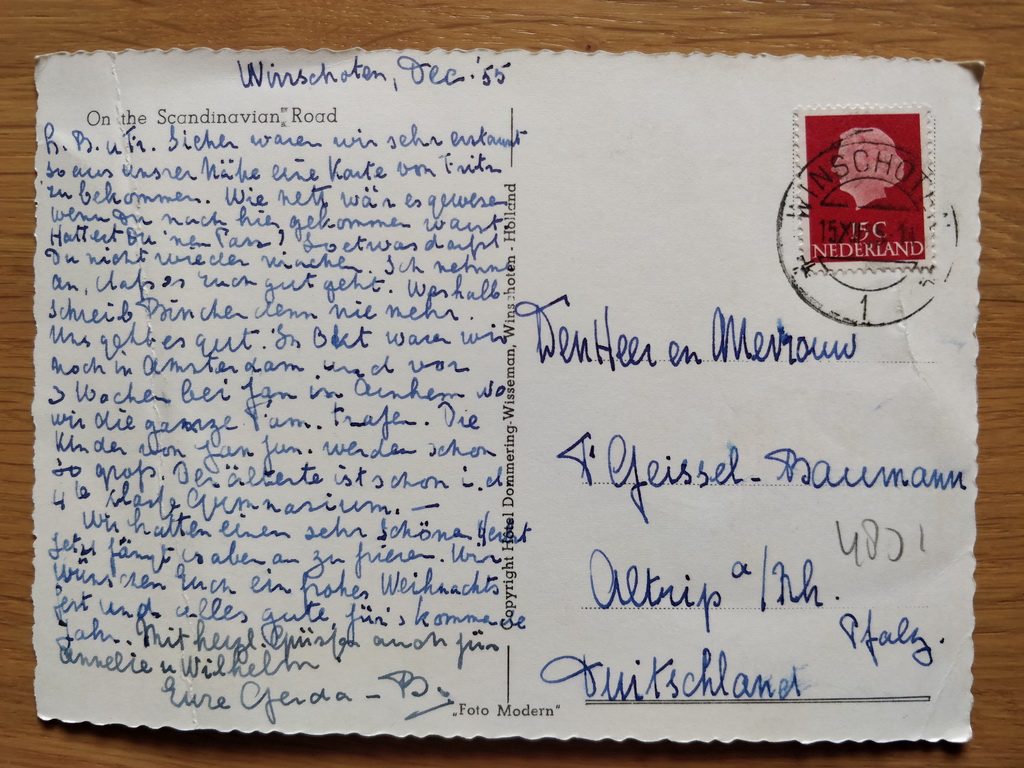 Winschoten, Dec. '55
On the Scandinavian Road
L. B. u Fr. Sicher waren wir sehr erstaunt
so aus unsrer Nähe eine Karte von Fritz
zu bekommen. Wie nett wär es gewesen
wenn Du nach hier gekommen warst
Hattest Du 'nen Pass? So etwas darfst
Du nicht wieder machen. Ich nehme
an, dass es Euch gut geht. Weshalb
schreib denn nie mehr.
Uns geht es gut. In Okt waren wir
noch in Amsterdam und vor
3 Wochen bei Jan in Arnhem wo
wir die ganze Fam. trafen. Die
Kinder von Jan jun. werden schon
so groß. Der älterte ist schon i. d
4te Klaße Gymnasium. —
Wir hatten einen sehr schönen Herbst
jetzt fängt es aber an zu frieren. Wir
wünschen Euch ein frohes Weihnachts
fest und alles gute für's kommende
Jahr. Mit herzl. Grüßen auch für
Annelie u Wilhelm
Eure Gerda –
Copyright Hôtel Dommering-Wisseman, Winschoten - Holland
„Foto Modern"
WINSCHOTEN
1
15 C
NEDERLAND
Den Heer en Mevrouw
F Geissel - Baumann
Altrip a/Rh.
Pfalz.
Duitschland